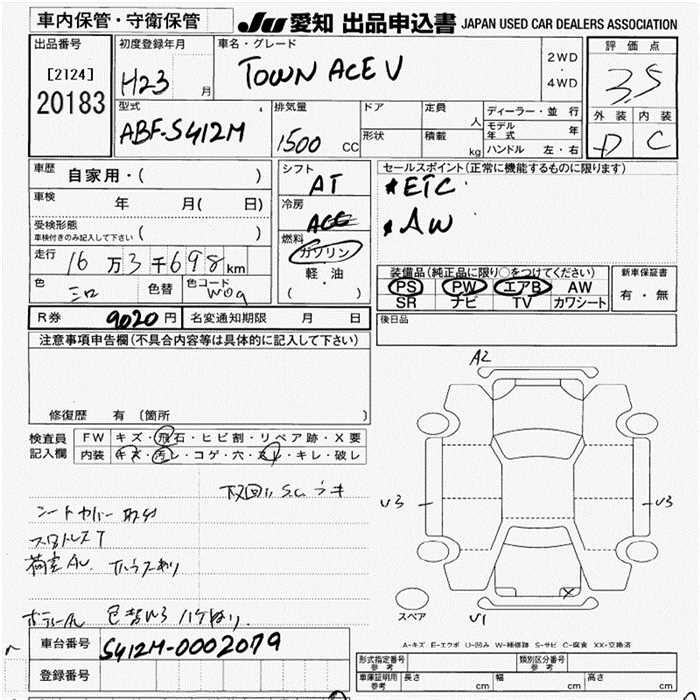 車内保管・守衛保管
JU 愛知 出品申込書 JAPAN USED CAR DEALERS ASSOCIATION
出品番号
[2124]
20183
初度登録年月
H23 月
車名・グレード
TOWN ACE V
2WD
・
4WD
評価点
3.5
外装 内装
D C
型式
ABF-S412M
排気量
1500 CC
ドア
形状
定員
人
積載
kg
ディーラー・並行
モデル年式 年
ハンドル 左・右
車歴 自家用・( )
車検 年 月( 日)
受検形態
車検付きのみ記入して下さい ( )
走行 16 万 3 千 698 km
色 色替 色コード
W09
シフト
AT
冷房
燃料
ガソリン
軽・油
( )
セールスポイント(正常に機能するものに限ります)
*ETC
*AW
装備品(純正品に限り○をつけてください)
PS PW エアB AW
SR ナビ TV カワシート
新車保証書
有・無
R券 9020 円 名変通知期限 月 日
後日品
注意事項申告欄(不具合内容等は具体的に記入して下さい)
修復歴 有 (箇所 )
検査員記入欄
FW キズ・飛石・ヒビ割・リペア跡・X要
内装 キズ・汚レ・コゲ・穴・スレ・キレ・破レ
下回り S.C. サキ
シートカバー
A2
U3
U3
X
U1
スペア
車台番号 S412M-0002079
登録番号
A-キズ E-エクボ U-凹み W-補修跡 S-サビ C-腐食 XX-交換済
形式指定番号 参考
類別区分番号 参考
車庫証明用 参考 長さ cm 幅 cm 高さ cm